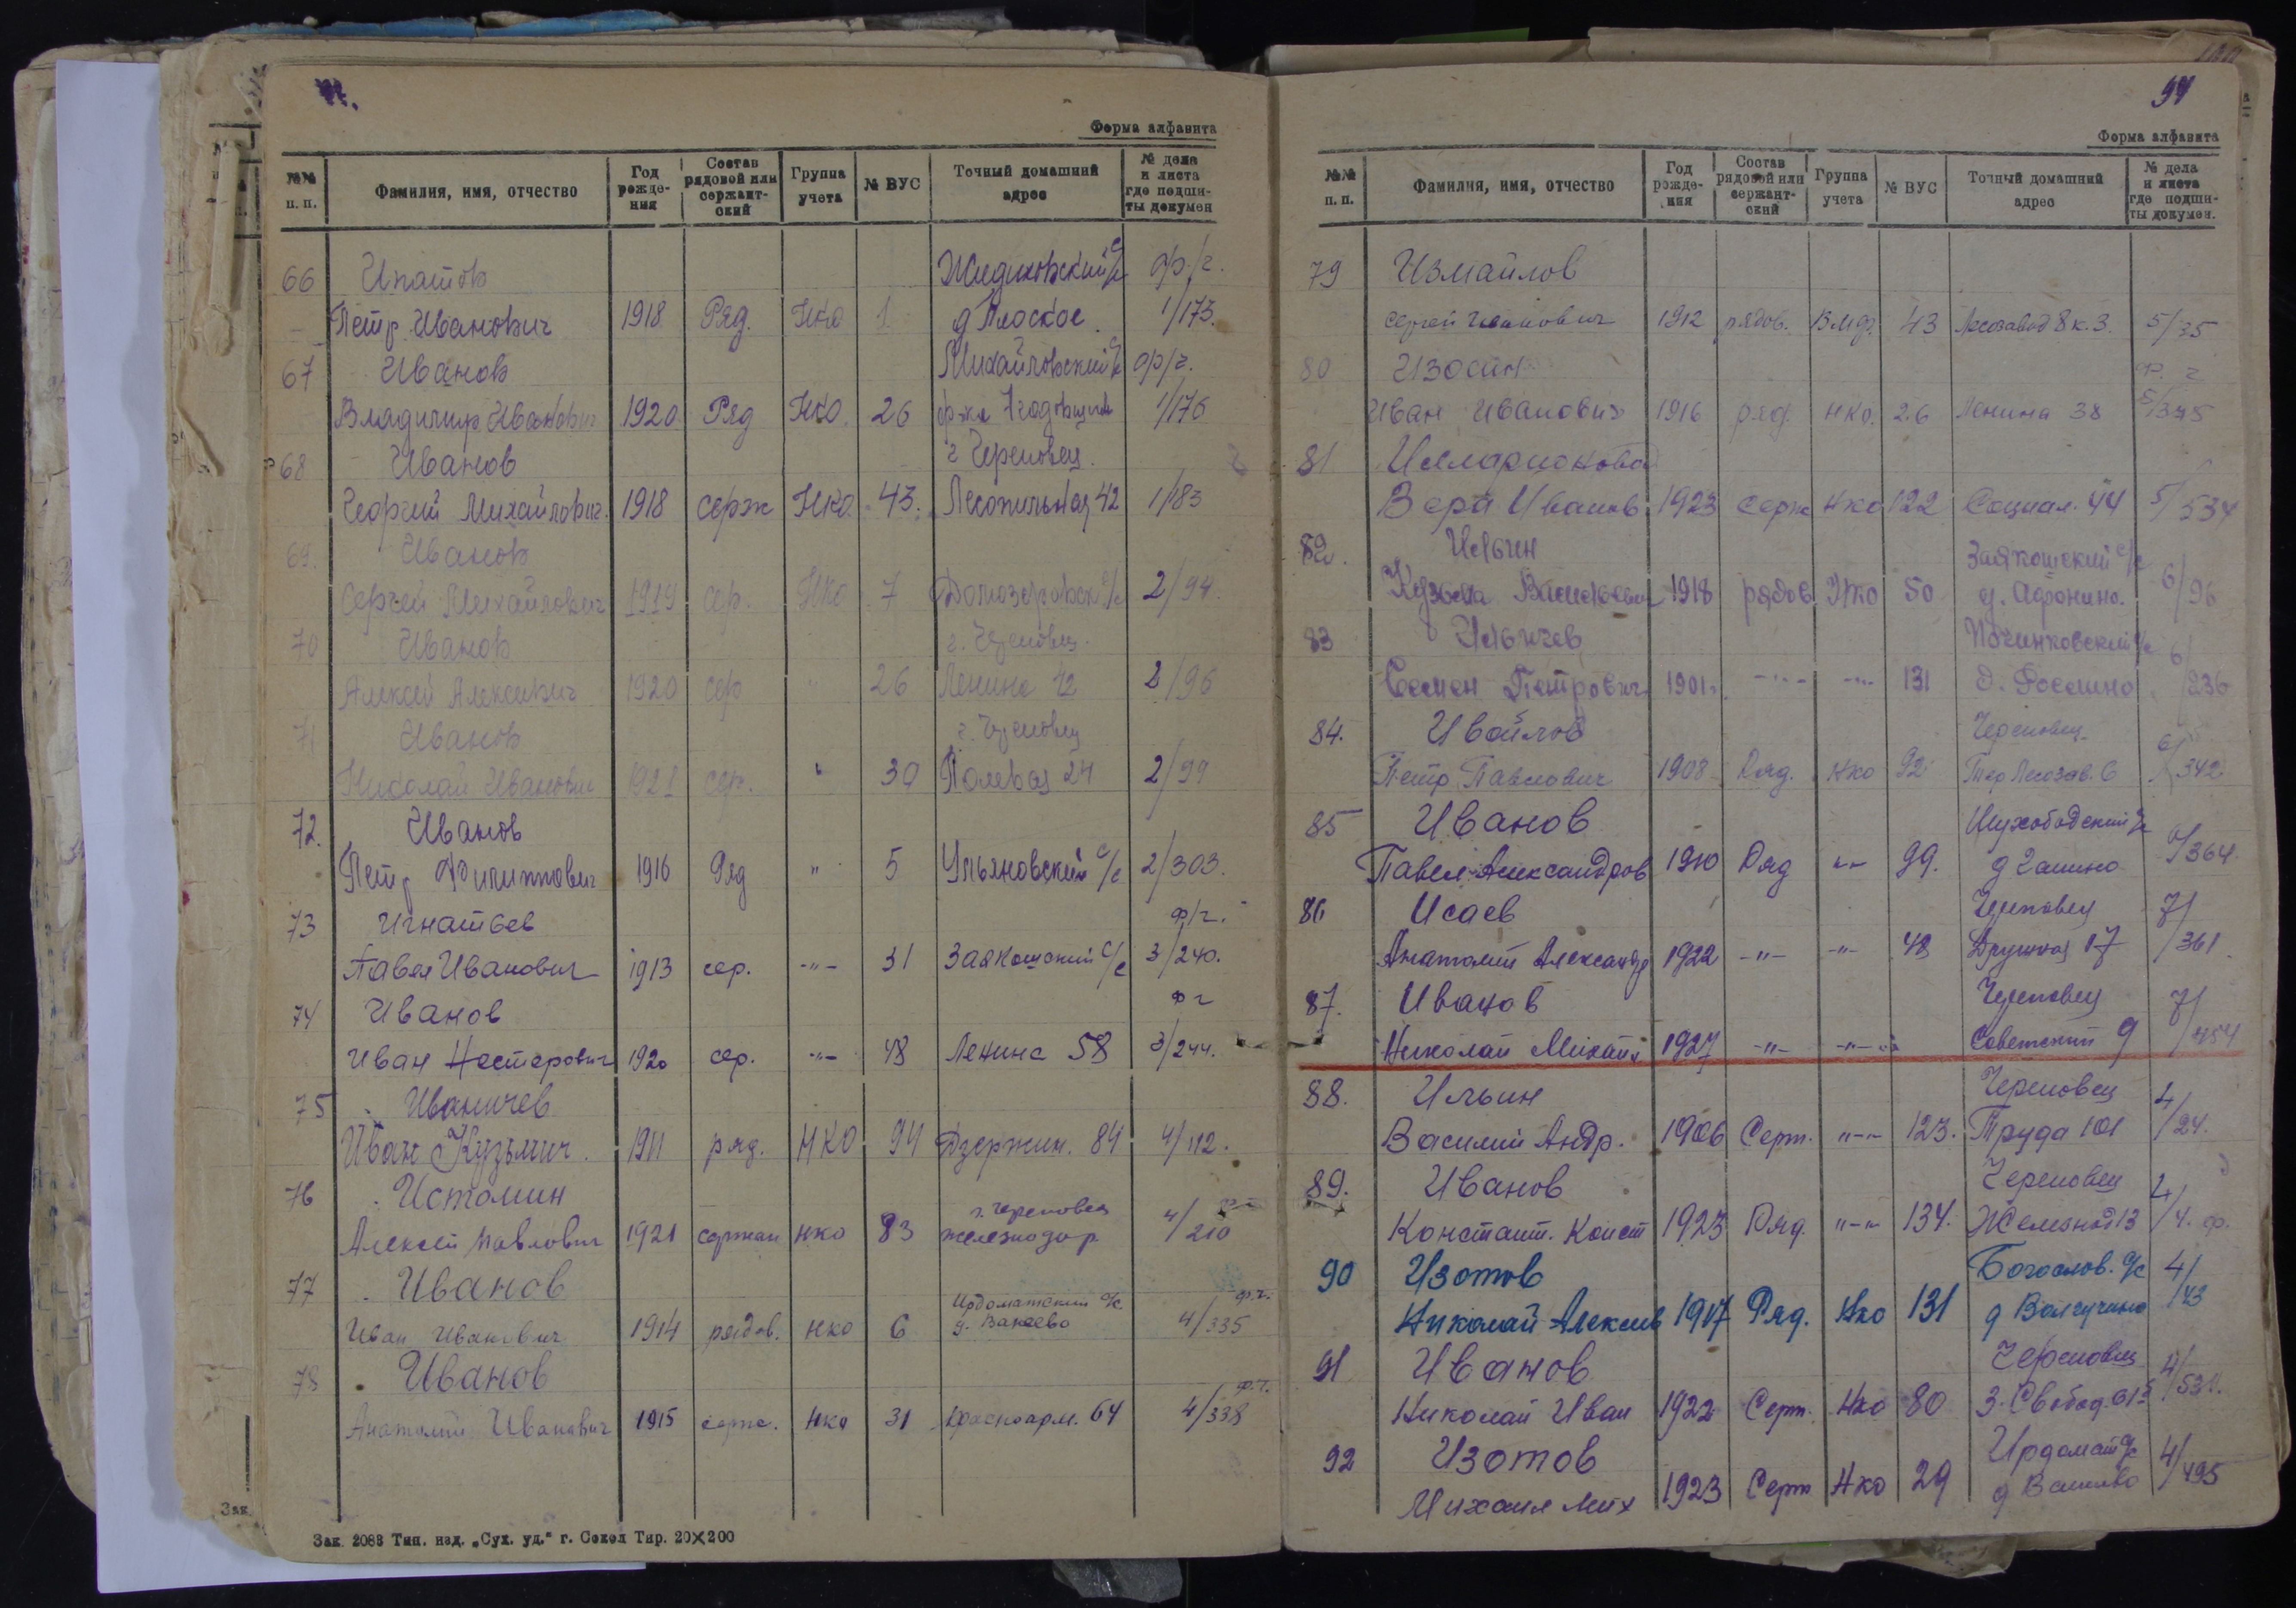 Форма алфавита
№№ п. п. Фамилия, имя, отчество Год рождения Состав рядовой или сержантский Группа учета № ВУС Точный домашний адрес № дела и листа где подшиты докумен
66 Ипатов Жидиховский с/с ф/г.
Петр Иванович 1918 Ряд. НКО 1 д Плоское 1/173.
67 Иванов Михайловский с/с ф/г.
Владимир Иванович 1920 Ряд НКО. 26 1/176
68 Иванов г Череповец.
Георгий Михайлович. 1918 серж НКО. 43. Лесопильная 42 1/183
69. Иванов
Сергей Михайлович 1919 сер. НКО 7 с/с 2/94.
70 Иванов г. Череповец.
Алексей Алексеевич 1920 сер " 26 Ленина 12 2/96
71 Иванов г. Череповец
Николай Иванович 1921 сер. " 30 Полевая 24 2/99
72. Иванов
Петр Филиппович 1916 Ряд " 5 Ульяновский с/с 2/303.
73 Игнатьев ф/г.
Павел Иванович 1913 сер. -"- 31 Заякошский с/с 3/240.
74 Иванов ф г
Иван Нестерович 1920 сер. -"- 48 Ленина 58 3/244.
75 Иваничев
Иван Кузьмич. 1911 ряд. НКО 94 Дзержин. 84 4/112.
76 Истомин г. Череповец
Алексей Павлович 1921 сержан НКО 83 железнодор. 4/210
77 Иванов Ирдоматский с/с ф.г.
Иван Иванович 1914 рядов. НКО 6 д. Ванеево 4/335
78 Иванов ф.г.
Анатолий Иванович 1915 серж. НКО 31 Красноарм. 64 4/338
Зак. 2088 Тип. изд. „Сух. уд.“ г. Сокол Тир. 20×200
97
Форма алфавита
№№ п. п. Фамилия, имя, отчество Год рождения Состав рядовой или сержантский Группа учета № ВУС Точный домашний адрес № дела и листа где подшиты докумен.
79 Измайлов
Сергей Иванович 1912 рядов. ВМФ. 43 Лесозавод 8 к. 3. 5/35
80 Изосин ф. г
Иван Иванович 1916 ряд. НКО. 26 Ленина 38 5/375
81 Илларионова
Вера Иванов 1923 серж НКО 122 Социал. 44 5/534
82. Ильин Заякошский с/с
Кузьма Васильевич 1918 рядов НКО 50 д. Афонино. 6/96
83 Ильичев Починковский с/с
Семен Петрович 1901 -"- -"- 131 д. 6/236
84. Ивайлов Череповец.
Петр Павлович 1908 Ряд. НКО 92 Тер Лесозав. 6 6/342
85 Иванов Шухободский с/с
Павел Александров 1910 Ряд -"- 99. д 6/364
86 Исаев Череповец
Анатолий Александр 1922 -"- -"- 48 17 7/361
87. Иванов Череповец
Николай Михайл 1927 -"- -"- Советский 9 7/454
88. Ильин Череповец
Василий Андр. 1906 Серж. -"- 123. Труда 101 4/24.
89. Иванов Череповец
Констант. Конст 1923 Ряд. -"- 134. Железной 13 4/4. ф.
90 Изотов Богослов. с/с
Николай Алексеев 1917 Ряд. НКО 131 д 4/143
91 Иванов Череповец
Николай Иван 1922 Серж. НКО 80 З. Свобод. 61 4/531.
92 Изотов Ирдомат с/с
Михаил Мих 1923 Серж НКО 29 д 4/495